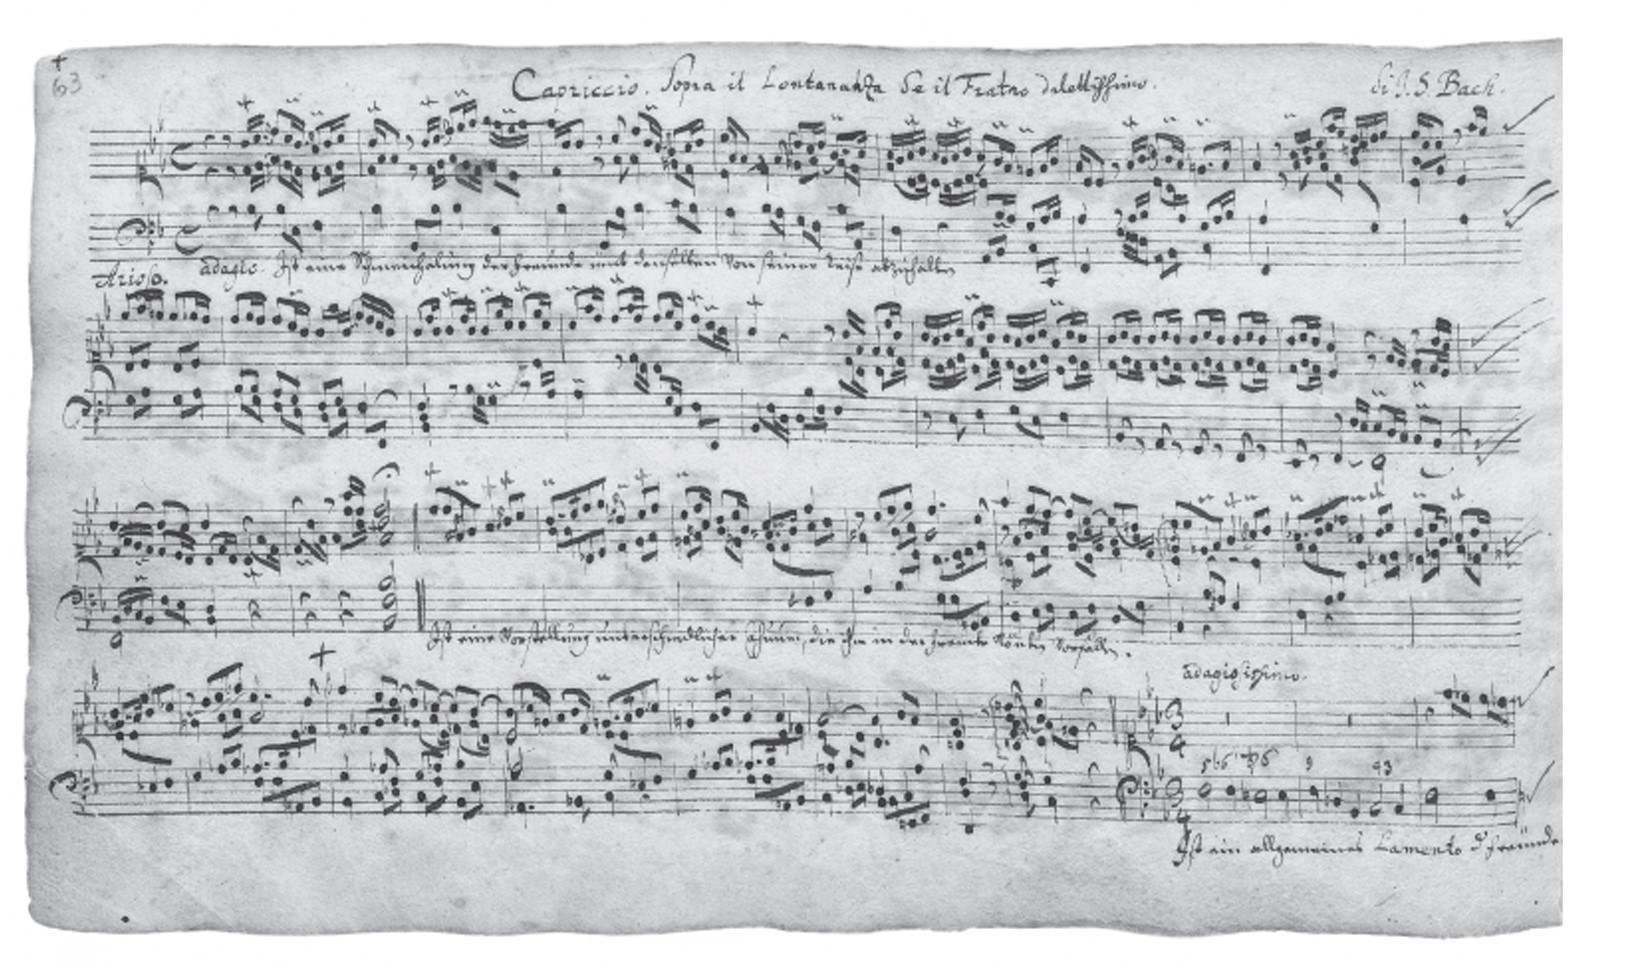 63
Capriccio. Sopra il Lontananza de il Fratro dilettissimo. di J. S. Bach.
Arioso. adagio. Ist eine Schmeichelung der Freunde umb denselben von seiner Reise abzuhalten
Ist eine Vorstellung unterschiedlicher Casuum, die ihm in der Fremde könten vorfallen.
adagissimo.
5 b6 6 9 93
Ist ein allgemeines Lamento d Freunde